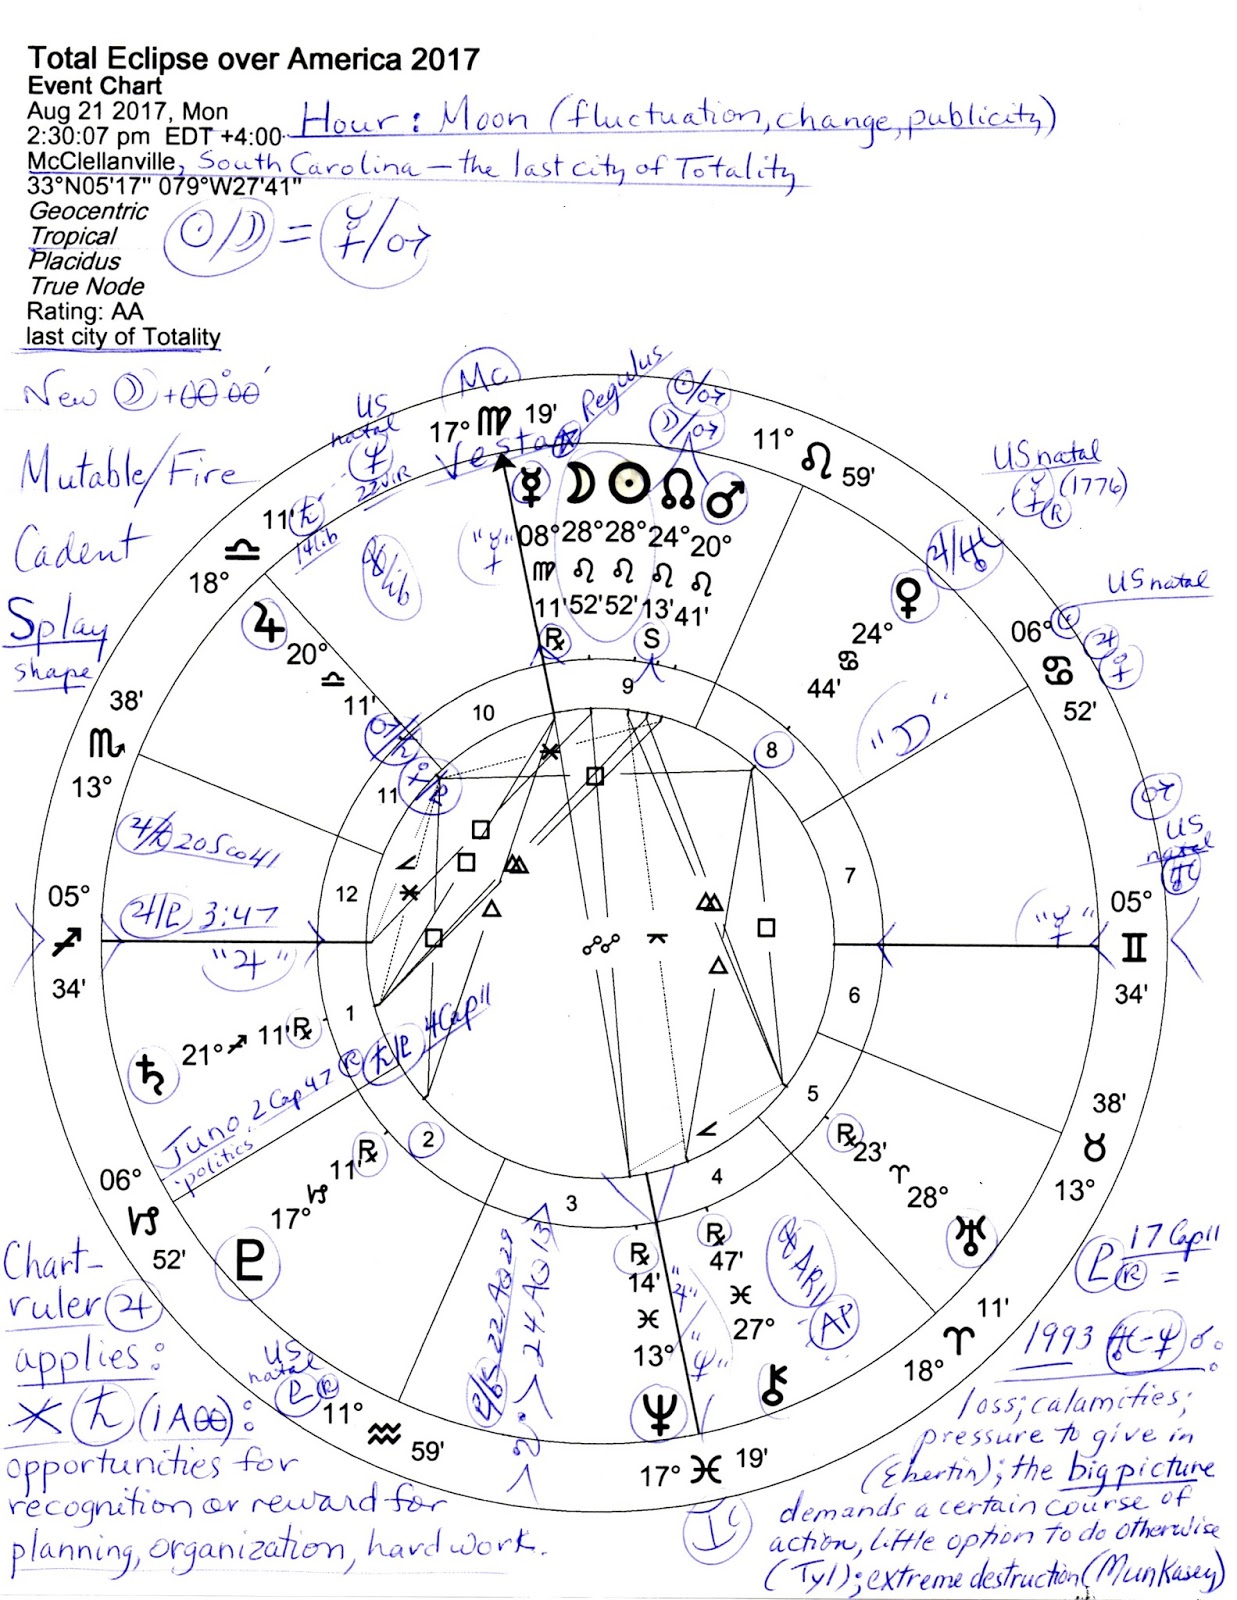 Total Eclipse over America 2017
Event Chart
Aug 21 2017, Mon
2:30:07 pm EDT +4:00
Hour: Moon (fluctuation, change, publicity)
McClellanville, South Carolina – the last city of Totality
33°N05'17" 079°W27'41"
Geocentric
Tropical
Placidus
True Node
Rating: AA
last city of Totality
☉/☽ = ☿/♂
New ☽ +00°00'
Mutable/Fire
Cadent
Splay
shape
Mc
17° ♍ 19'
Vesta
Regulus
☉/♂
☽/♂
11° ♌ 59'
US
natal
♆
22VIR
11' ♎ 18°
♄
14Lib
US natal
☿ (1776)
R
♃/♅
US natal
☉ ♃ ♀
06° ♋ 52'
♂
US
natal
♅
05° ♊ 34'
"☿"
☿ 08° ♍ 11' ℞
☽ 28° ♌ 52'
☉ 28° ♌ 52'
☊ 24° ♌ 13' S
♂ 20° ♌ 41'
"☿"
♀ 24° ♋ 44'
"☽"
♃ 20° ♎ 11'
38' ♏ 13°
♃/♄ 20Sco41
♃/P 3:47
"♃"
05° ♐ 34'
♄ 21° ♐ 11' ℞
Juno 2Cap47 R
'politics
♄/P 4Cap11
06° ♑ 52'
♇ 17° ♑ 11' ℞
US
natal
P R
11° ♒ 59'
22AQ29
24AQ13
♆ 13° ♓ 14' ℞
"♃"/"♆"
⚷ 27° ♓ 47' ℞
ARI
AP
17° ♓ 19'
IC
♅ 28° ♈ 23' ℞
18° ♈ 11'
38' ♉ 13°
1
2
3
4
5
6
7
8
9
10
11
12
Chart-
ruler ♃
applies:
⚹ ♄ (1A00):
opportunities for
recognition or reward for
planning, organization, hard work.
P R 17Cap11
=
1993 ♅-♆ ☌:
loss; calamities;
pressure to give in
(Ebertin); the big picture
demands a certain course of
action, little option to do otherwise
(Tyl); extreme destruction (Munkasey)